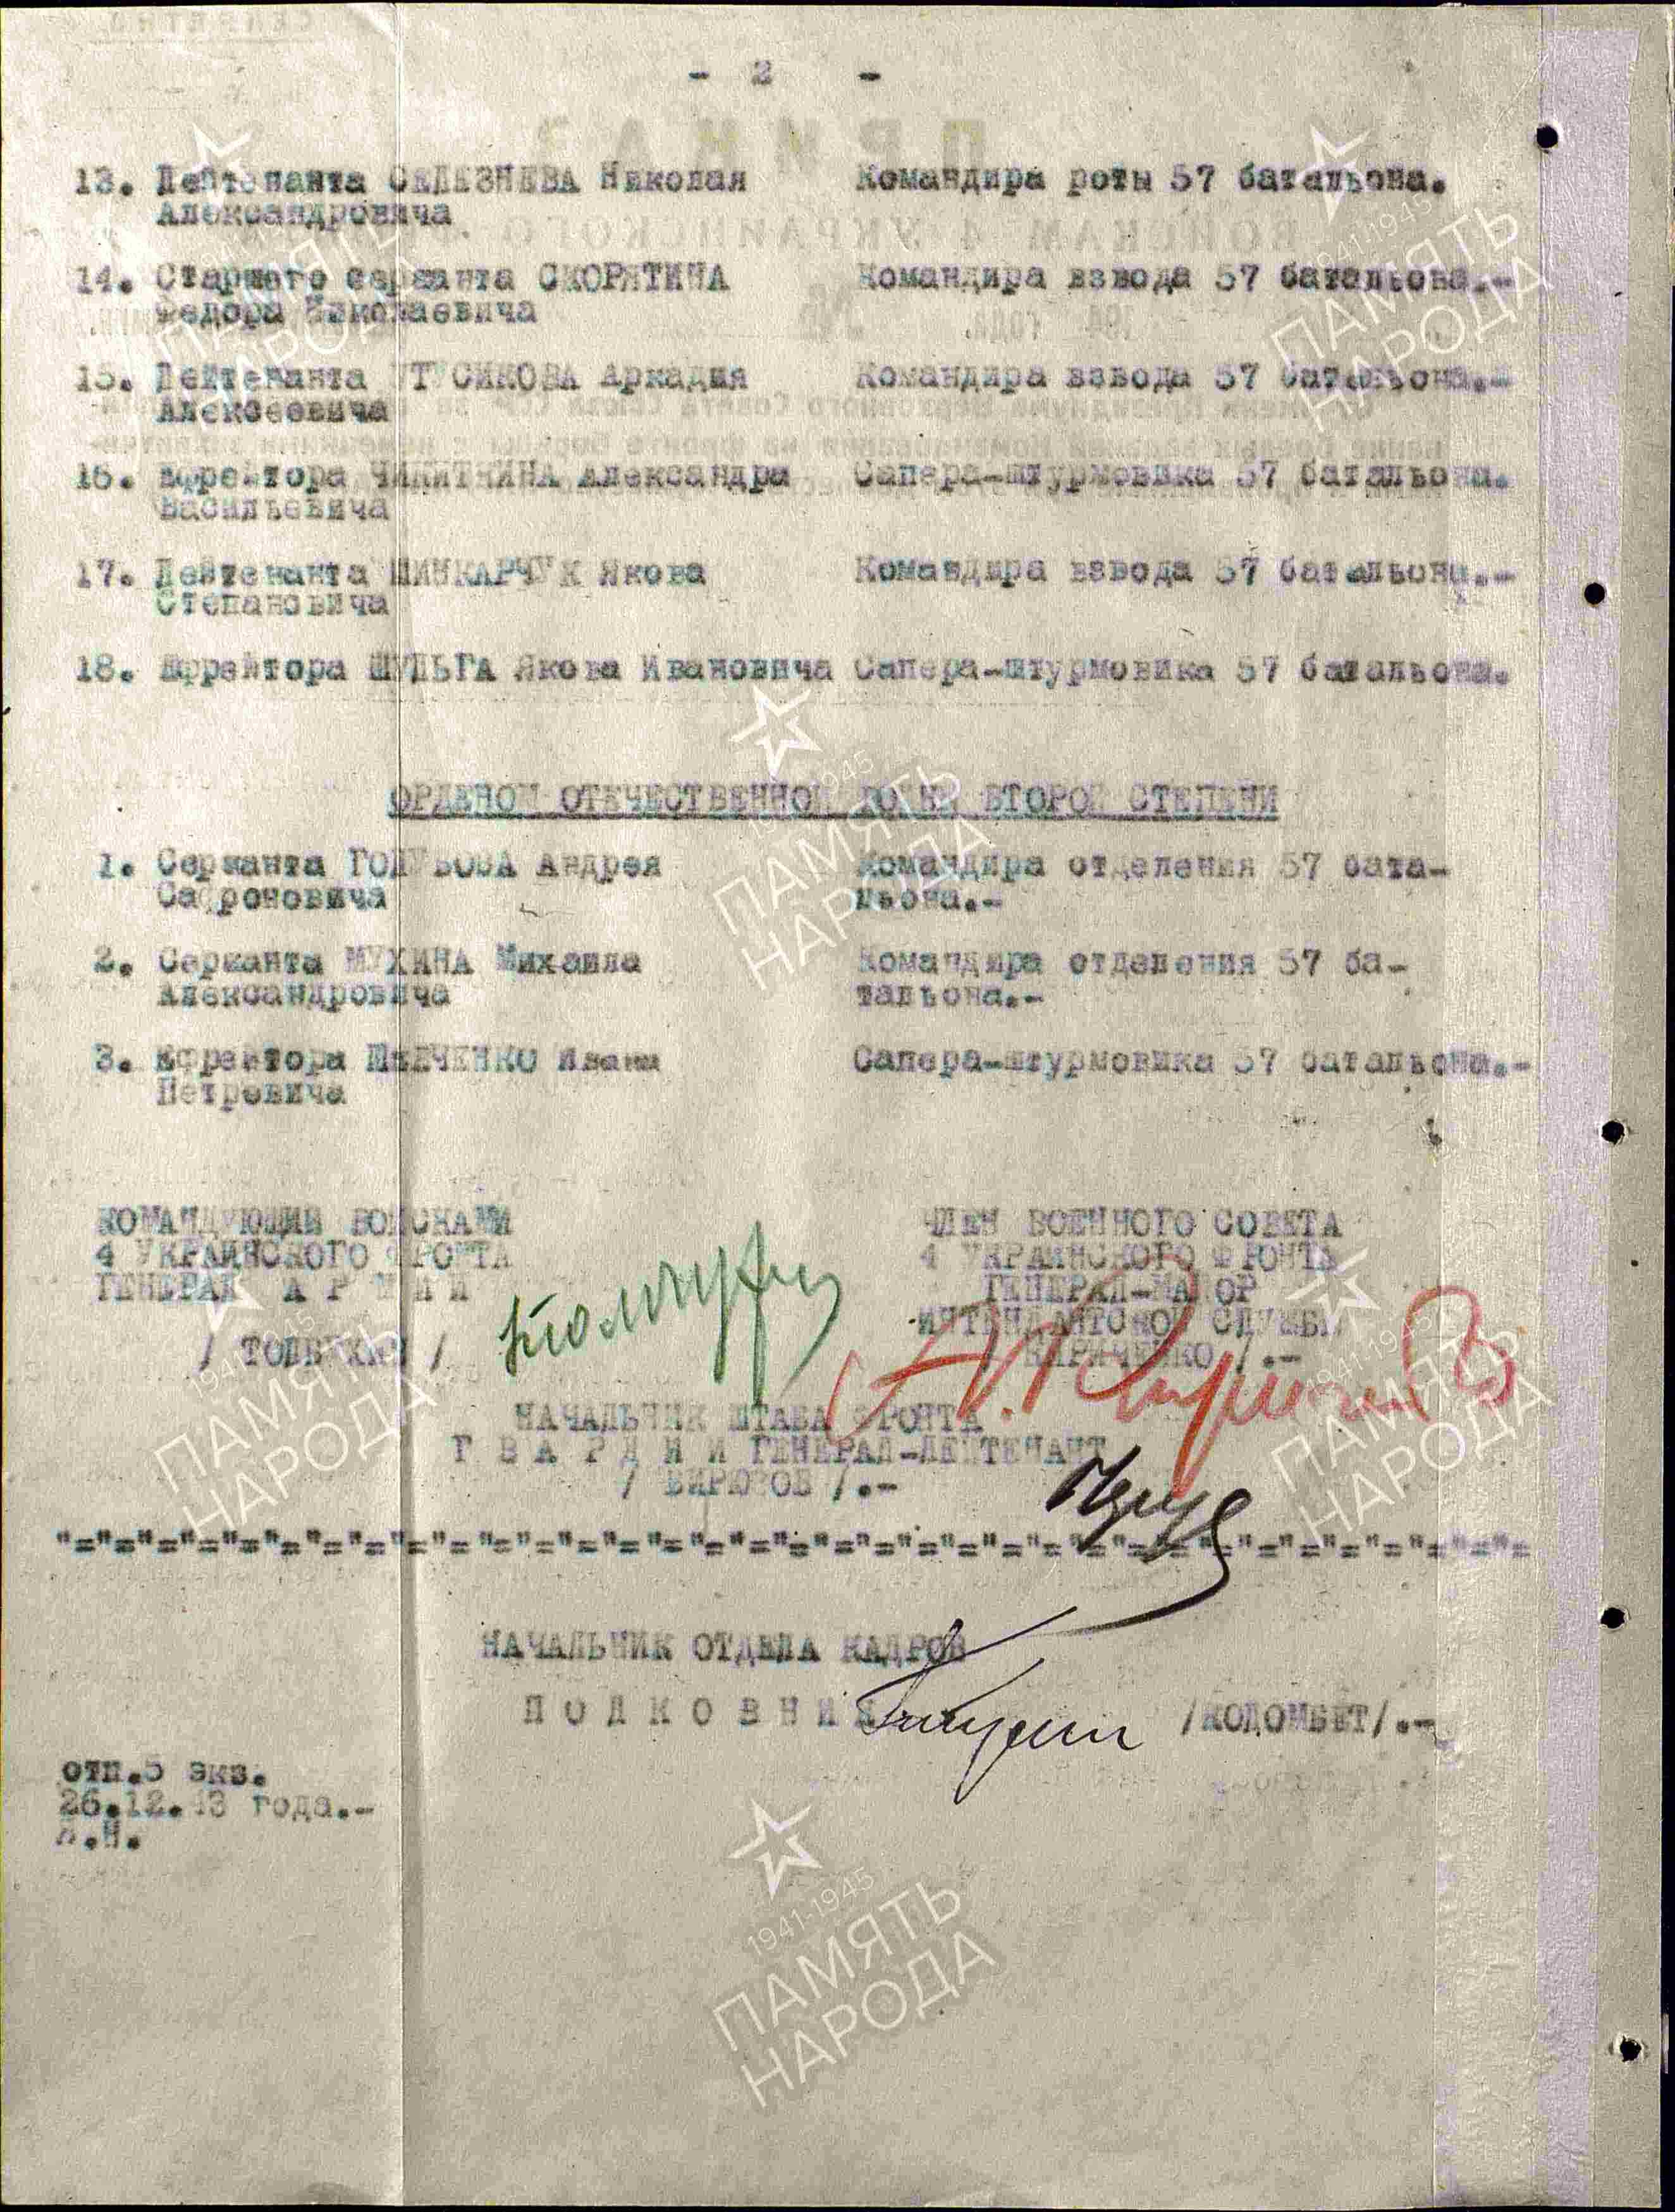 - 2 -
13. Лейтенанта СЕЛЕЗНЕВА Николая Командира роты 57 батальона.
Александровича
14. Старшего сержанта СКОРЯТИНА Командира взвода 57 батальона.-
Федора Николаевича
15. Лейтенанта УТУСИКОВА Аркадия Командира взвода 57 батальона.-
Алексеевича
16. Ефрейтора Александра Сапера-штурмовика 57 батальона.
Васильевича
17. Лейтенанта ШИНКАРЧУК Якова Командира взвода 57 батальона.-
Степановича
18. Ефрейтора ШУЛЬГА Якова Ивановича Сапера-штурмовика 57 батальона.
ОРДЕНОМ ОТЕЧЕСТВЕННОЙ ВОЙНЫ ВТОРОЙ СТЕПЕНИ
1. Сержанта ГОЛУБОВА Андрея Командира отделения 57 бата-
Сафроновича льона.-
2. Сержанта МУХИНА Михаила Командира отделения 57 ба-
Александровича тальона.-
3. Ефрейтора ШЕВЧЕНКО Ивана Сапера-штурмовика 57 батальона.-
Петровича
КОМАНДУЮЩИЙ ВОЙСКАМИ ЧЛЕН ВОЕННОГО СОВЕТА
4 УКРАИНСКОГО ФРОНТА 4 УКРАИНСКОГО ФРОНТА
ГЕНЕРАЛ АРМИИ ГЕНЕРАЛ-МАЙОР
ИНТЕНДАНТСКОЙ СЛУЖБЫ
/ ТОЛБУХИН / / КИРИЧЕНКО /.-
НАЧАЛЬНИК ШТАБА ФРОНТА
ГВАРДИИ ГЕНЕРАЛ-ЛЕЙТЕНАНТ
/ БИРЮЗОВ /.-
НАЧАЛЬНИК ОТДЕЛА КАДРОВ
ПОЛКОВНИК /КОЛОМБЕТ/.-
отп.5 экз.
26.12.43 года.-
1941-1945
ПАМЯТЬ
НАРОДА